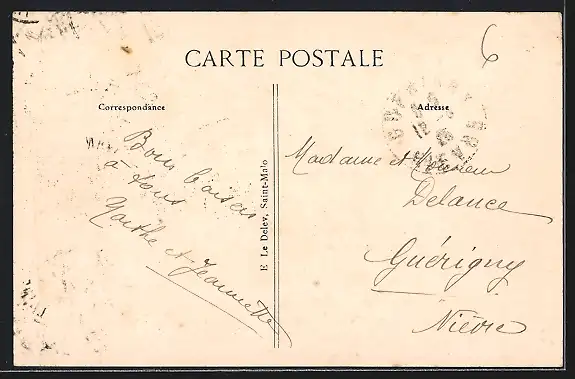 6
CARTE POSTALE
Correspondance
Adresse
Bons baisers
à tous
Marthe et Jeannette
E Le Deley, Saint-Malo
Madame et Monsieur
Delance
Guérigny
Nièvre